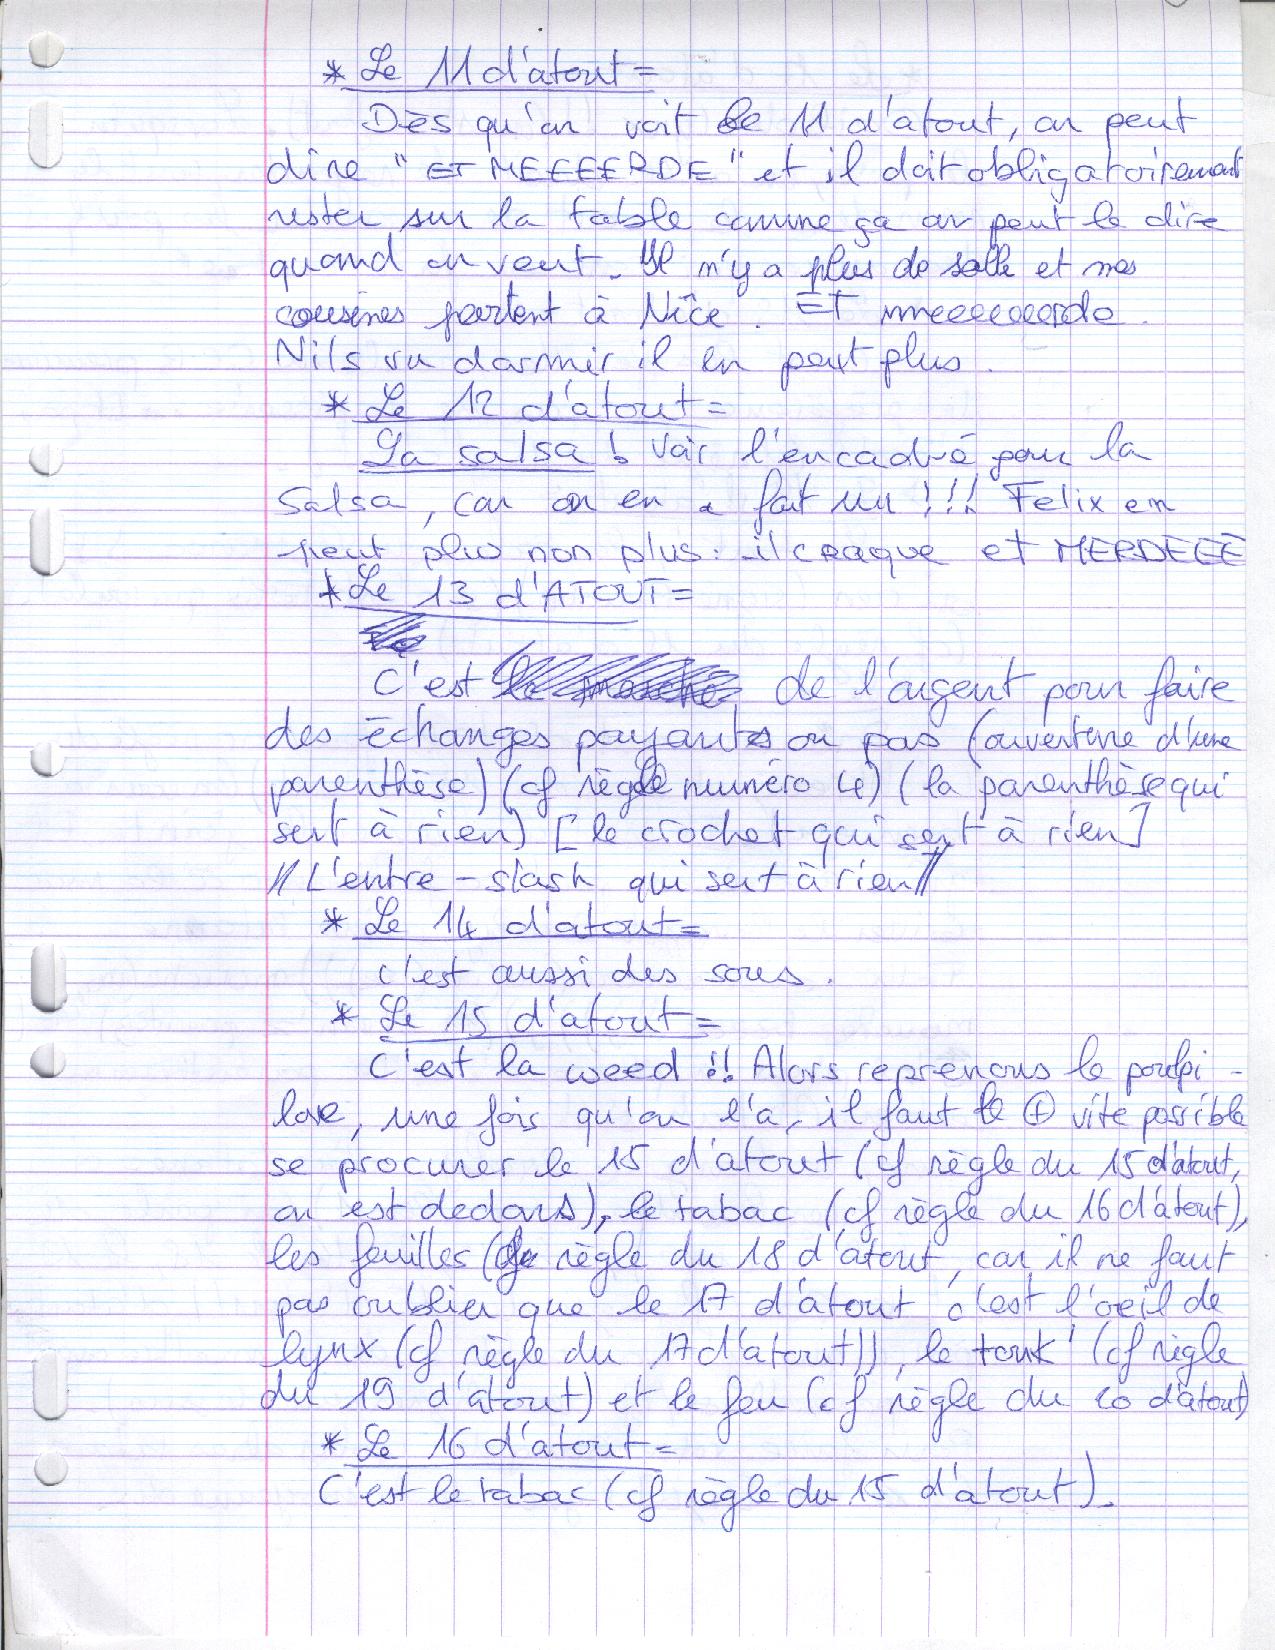 * Le 11 d'atout =
Dès qu'on voit le 11 d'atout, on peut
dire "ET MEEEERDE" et il doit obligatoirement
rester sur la table comme ça on peut le dire
quand on veut. Il n'y a plus de salle et mes
cousines partent à Nice. ET mmeeeeeerde.
Nils va dormir il en peut plus.
* Le 12 d'atout =
La salsa ! Voir l'encadré pour la
Salsa, car on en a fait un !!! Felix en
peut plus non plus : il craque et MERDEEE
* Le 13 d'ATOUT =
C'est de l'argent pour faire
des échanges payants ou pas (ouverture d'une
parenthèse) (cf règle numéro 4) (la parenthèse qui
sert à rien) [le crochet qui sert à rien]
// L'entre-slash qui sert à rien //
* Le 14 d'atout =
c'est aussi des sous.
* Le 15 d'atout =
C'est la weed !! Alors reprenons le poulpi-
love, une fois qu'on l'a, il faut le ⊕ vite possible
se procurer le 15 d'atout (cf règle du 15 d'atout,
on est dedans), le tabac (cf règle du 16 d'atout),
les feuilles (cf règle du 18 d'atout, car il ne faut
pas oublier que le 17 d'atout c'est l'oeil de
lynx (cf règle du 17 d'atout)), le tonk' (cf règle
du 19 d'atout) et le feu (cf règle du 20 d'atout)
* Le 16 d'atout =
C'est le tabac (cf règle du 15 d'atout).